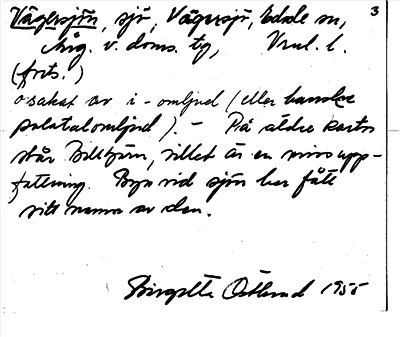 Vägersjön, sjö, Vägersjö, Edsele sn, 3
Ång. v. doms. tg, Vnl. l.
(forts.)
osakat av i-omljud (eller kanske
palatalomljud). - På äldre kartor
står Billsjön, vilket är en missupp-
fattning. Byn vid sjön har fått
sitt namn av den.
Birgitta Östlund 1955